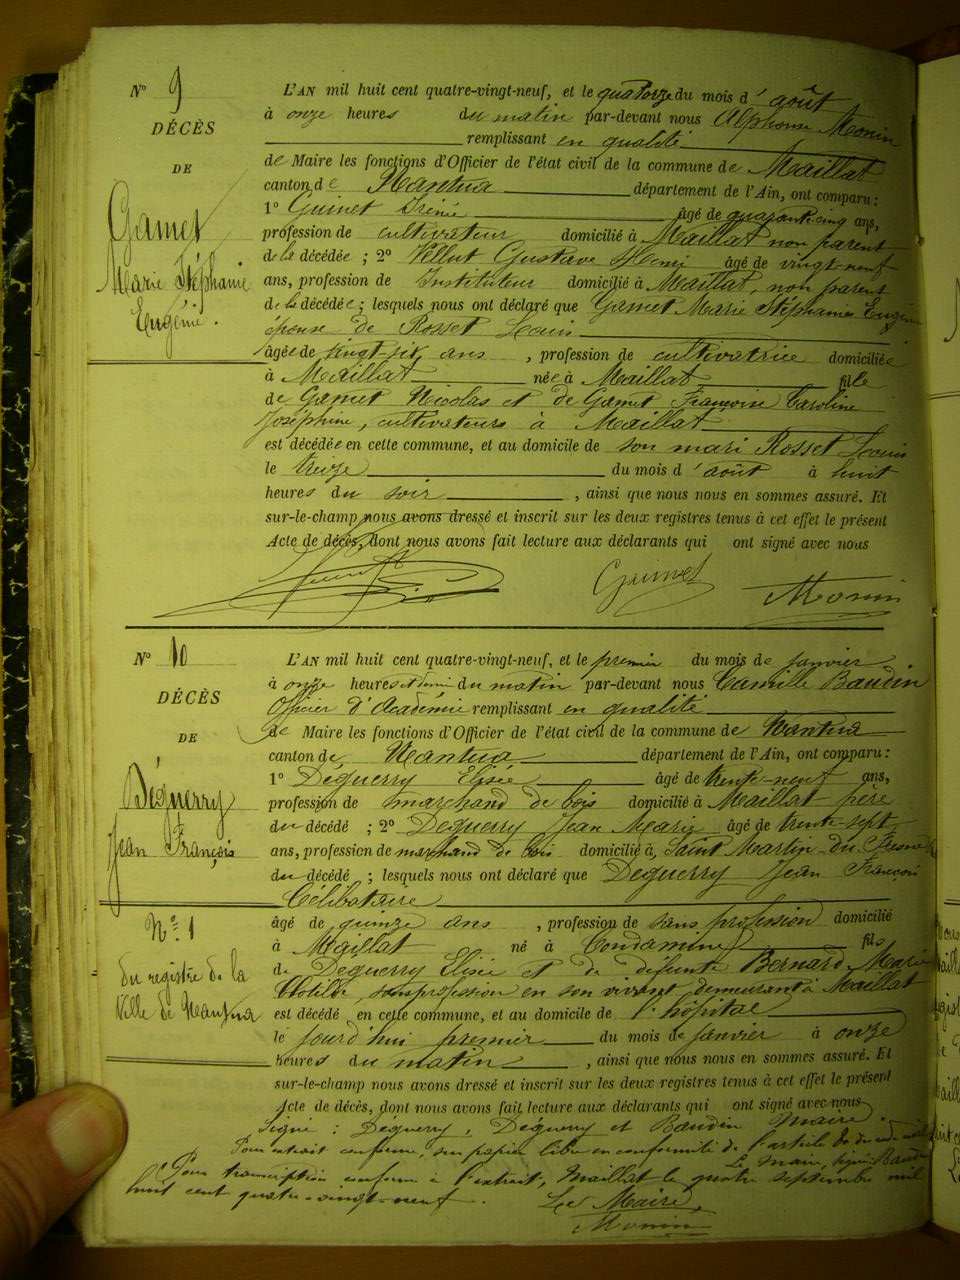 N° 9
DÉCÈS
DE
Gamet
Marie Stéphanie
Eugénie.
L'AN mil huit cent quatre-vingt-neuf, et le quatorze du mois d'août
à onze heures du matin par-devant nous Alphonse Monin
remplissant en qualité
de Maire les fonctions d'Officier de l'état civil de la commune de Maillat
canton de Nantua département de l'Ain, ont comparu :
1° Guinet Irénée âgé de quarante cinq ans,
profession de cultivateur domicilié à Maillat non parent
de la décédée ; 2° Vellut Gustave Henri âgé de vingt-neuf
ans, profession de Instituteur domicilié à Maillat, non parent
de la décédée ; lesquels nous ont déclaré que Gamet Marie Stéphanie Eugénie
épouse de Rosset Louis
âgée de vingt-six ans , profession de cultivatrice domiciliée
à Maillat née à Maillat fille
de Gamet Nicolas et de Gamet Françoise Caroline
Joséphine, cultivateurs à Maillat
est décédée en cette commune, et au domicile de son mari Rosset Louis
le treize du mois d'août à huit
heures du soir , ainsi que nous nous en sommes assuré. Et
sur-le-champ nous avons dressé et inscrit sur les deux registres tenus à cet effet le présent
Acte de décès, dont nous avons fait lecture aux déclarants qui ont signé avec nous
Guinet Monin
N° 10
DÉCÈS
DE
Déguerry
Jean François
N° 1
du registre de la
Ville de Nantua
L'AN mil huit cent quatre-vingt-neuf, et le premier du mois de janvier
à onze heures et demi du matin par-devant nous Camille Baudin
Officier d'Académie remplissant en qualité
de Maire les fonctions d'Officier de l'état civil de la commune de Nantua
canton de Nantua département de l'Ain, ont comparu :
1° Deguerry Elisée âgé de trente-neuf ans,
profession de marchand de bois domicilié à Maillat père
du décédé ; 2° Deguerry Jean Marie âgé de trente-sept
ans, profession de marchand de bois domicilié à Saint Martin-du-Fresne
du décédé ; lesquels nous ont déclaré que Deguerry Jean François
Célibataire
âgé de quinze ans , profession de sans profession domicilié
à Maillat né à Condamine fils
de Deguerry Elisée et de défunte Bernard Marie
Clotilde, sans profession en son vivant demeurant à Maillat
est décédé en cette commune, et au domicile de l'hôpital
le jourd'hui premier du mois de janvier à onze
heures du matin , ainsi que nous nous en sommes assuré. Et
sur-le-champ nous avons dressé et inscrit sur les deux registres tenus à cet effet le présent
Acte de décès, dont nous avons fait lecture aux déclarants qui ont signé avec nous
Signé : Déguerry, Deguerry et Baudin Maire
Pour extrait conforme, sur papier libre en conformité de l'article 80 du code civil
Le Maire, signé Baudin
Pour transcription conforme à l'extrait, Maillat le quatre septembre mil
huit cent quatre-vingt-neuf. Le Maire,
Monin